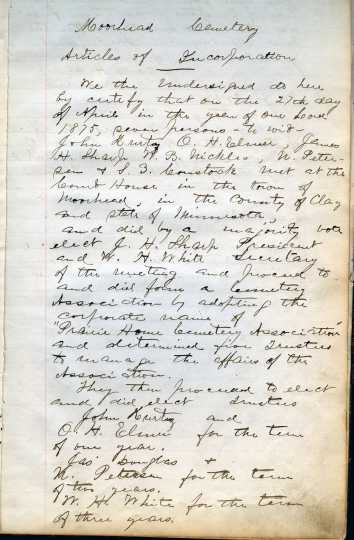 Moorhead Cemetery
Articles of Incorporation
We the Undersigned do here
by certify that on the 27th day
of April in the year of our Lord
1875, seven persons - to wit -
John Kurtz O. H. Elmer, James
H. Sharp, W. B. Nickles, N. Peter-
sen & S. G. Comstock met at the
Court House in the town of
Moorhead, in the County of Clay
and state of Minnesota,
and did by a majority vote
elect J. H. Sharp President
and W. H. White Secretary
of the meeting and proceed to
and did form a Cemetery
Association by adopting the
corporate name of
"Prairie Home Cemetery Association"
and determined five Trustees
to manage the affairs of the
Association.
They then proceeded to elect
and did elect trustees
John Kurtz and
O. H. Elmer for the term
of one year.
Jas. Douglas &
N. Petersen for the term
of two years.
W. H. White for the term
of three years.